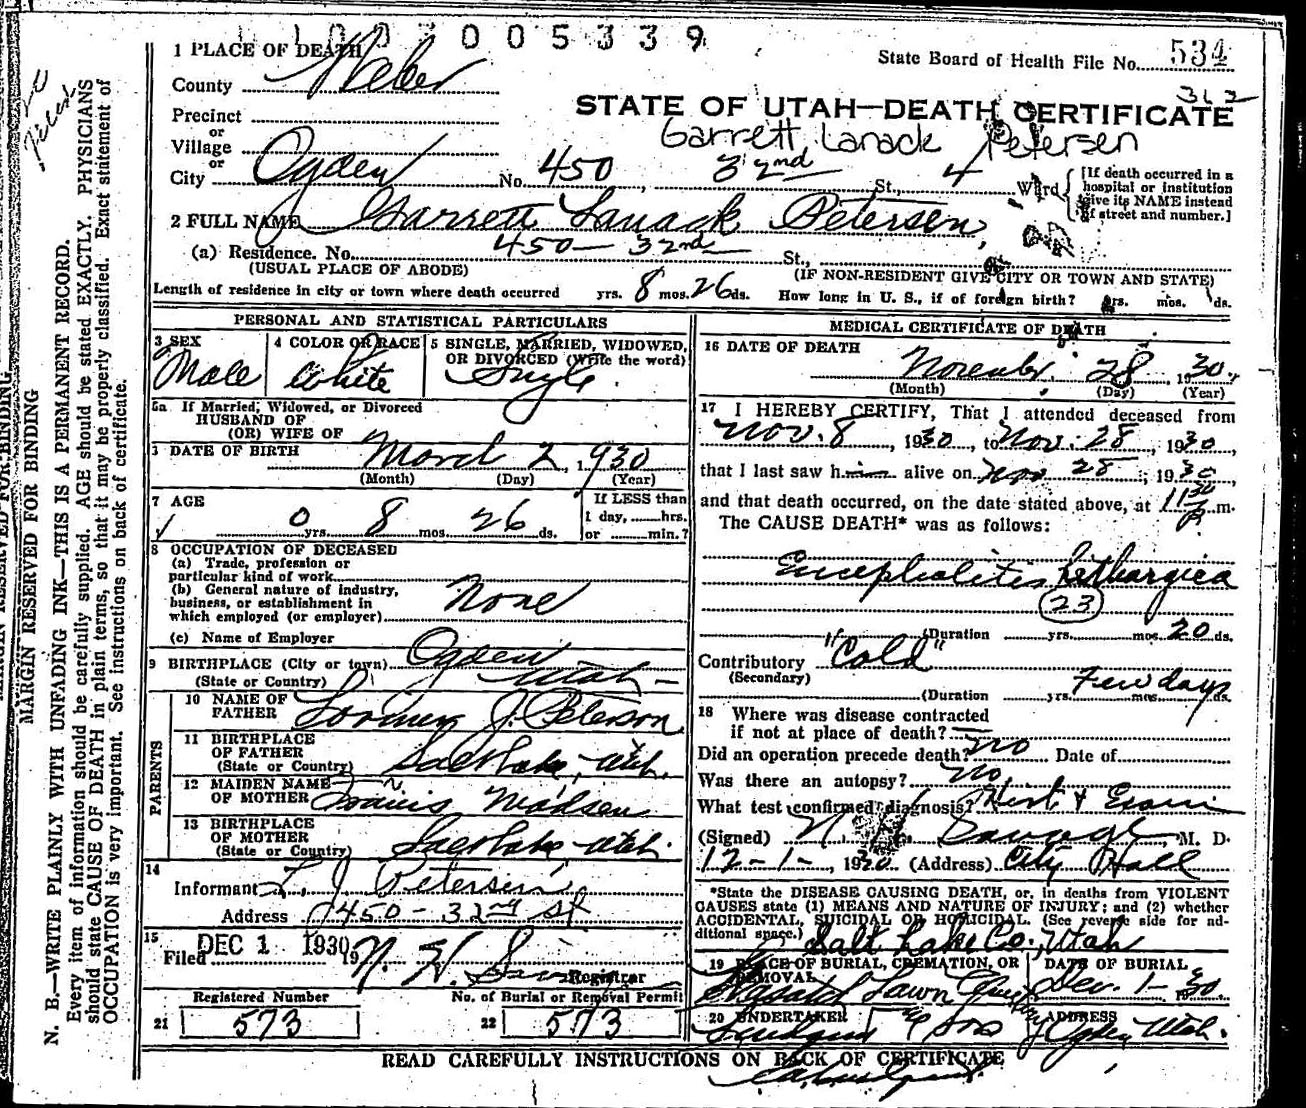 1 1 0 0 3 0 0 5 3 3 9
State Board of Health File No. 534
1 PLACE OF DEATH
County Weber
312
STATE OF UTAH—DEATH CERTIFICATE
Garrett Lanack Petersen
Precinct
or
Village
or
City Ogden No. 450, 32nd St., 4 Ward
[If death occurred in a hospital or institution give its NAME instead of street and number.]
2 FULL NAME Garrett Lanack Petersen
(a) Residence. No. 450 — 32nd St.,
(USUAL PLACE OF ABODE) (IF NON-RESIDENT GIVE CITY OR TOWN AND STATE)
Length of residence in city or town where death occurred yrs. 8 mos. 26 ds. How long in U. S., if of foreign birth? yrs. mos. ds.
PERSONAL AND STATISTICAL PARTICULARS
3 SEX Male
4 COLOR OR RACE White
5 SINGLE, MARRIED, WIDOWED, OR DIVORCED (Write the word) Single
5a If Married, Widowed, or Divorced
HUSBAND OF
(OR) WIFE OF
DATE OF BIRTH March 2, 1930
(Month) (Day) (Year)
7 AGE 0 yrs. 8 mos. 26 ds.
If LESS than
1 day, hrs.
or min.?
8 OCCUPATION OF DECEASED
(a) Trade, profession or
particular kind of work
(b) General nature of industry,
business, or establishment in
which employed (or employer) None
(c) Name of Employer
9 BIRTHPLACE (City or town) Ogden
(State or Country) Utah
PARENTS
10 NAME OF FATHER J. Peterson
11 BIRTHPLACE OF FATHER
(State or Country) Salt Lake, Utah.
12 MAIDEN NAME OF MOTHER Madsen
13 BIRTHPLACE OF MOTHER
(State or Country) Salt Lake Utah.
14
Informant L. J. Petersen
Address 450 - 32nd St
15
Filed DEC 1 1930 19 N. H. Savage Registrar
Registered Number
21 573
No. of Burial or Removal Permit
22 573
MEDICAL CERTIFICATE OF DEATH
16 DATE OF DEATH November 28, 1930,
(Month) (Day) (Year)
17 I HEREBY CERTIFY, That I attended deceased from
Nov. 8, 1930, to Nov. 28, 1930,
that I last saw him alive on Nov 28, 1930,
and that death occurred, on the date stated above, at 11 30 P. m.
The CAUSE DEATH* was as follows:
Encephalitis Lethargica
23
(Duration yrs. mos. 20 ds.
Contributory "Cold"
(Secondary)
(Duration yrs. mos. ds. Few days
18 Where was disease contracted
if not at place of death?
Did an operation precede death? no Date of
Was there an autopsy? no
What test confirmed diagnosis? Hist & Exam
(Signed) N H Savage, M. D.
12-1-, 1930 (Address) City Hall
*State the DISEASE CAUSING DEATH, or, in deaths from VIOLENT
CAUSES state (1) MEANS AND NATURE OF INJURY; and (2) whether
ACCIDENTAL, SUICIDAL OR HOMICIDAL. (See reverse side for additional space.)
Salt Lake Co., Utah
19 PLACE OF BURIAL, CREMATION, OR REMOVAL Wasatch Lawn
DATE OF BURIAL Dec. 1- 1930
20 UNDERTAKER & Sons
ADDRESS Ogden Utah.
READ CAREFULLY INSTRUCTIONS ON BACK OF CERTIFICATE
MARGIN RESERVED FOR BINDING
N. B.—WRITE PLAINLY WITH UNFADING INK—THIS IS A PERMANENT RECORD.
Every item of information should be carefully supplied. AGE should be stated EXACTLY. PHYSICIANS
should state CAUSE OF DEATH in plain terms, so that it may be properly classified. Exact statement of
OCCUPATION is very important. See instructions on back of certificate.